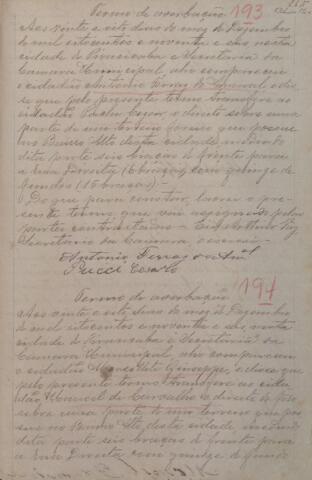 Termo de averbação 193
Aos vinte e sete dias do mez de Dezembro
de mil oitocentos e noventa e seis nesta
cidade de Piracicaba e Secretaria da
Camara Municipal, ahi compareceu
o cidadão Antonio Ferraz do Amaral e dis-
se que pelo presente termo transfere ao
cidadão o direito sobre uma
parte de um terreno foreiro que possue
no Bairro Alto desta cidade, medindo
dita parte seis braças de frente para
a rua Direita (6 braças) com quinze de
fundos (15 braças).
Do que para constar, lavrei o pre-
sente termo que vai assignado pelas
partes contractantes
Secretario da Camara, escrevi
Antonio Ferraz do Aml.
Pucci Cesare
Termo de averbação 194
Aos vinte e sete dias do mez de Dezembro
de mil oitocentos e noventa e seis, nesta
cidade de Piracicaba e Secretaria da
Camara Municipal, ahi compareceu
o cidadão Giuseppe, e disse que
pelo presente termo transfere ao cida-
dão de Carvalho o direito de
sobre uma parte de um terreno que pos-
sue no Bairro Alto desta cidade, medindo
dita parte seis braças de frente para
a rua Direita com quinze de fundo